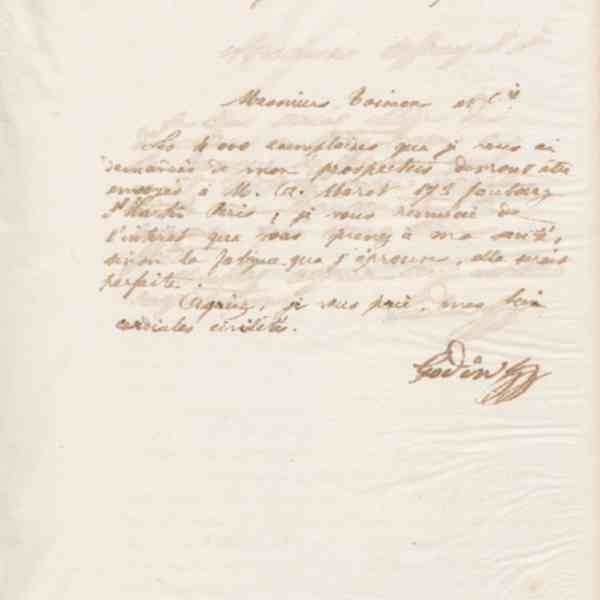 Messieurs Voinon et Cie
Les 4000 exemplaires que je vous ai
demandés de mon prospectus devront être
envoyés à M. A. Maret 172 faubourg
St Martin Paris ; je vous remercie de
l'intérêt que vous prenez à ma santé,
sinon la fatigue que j'éprouve, elle serait
parfaite.
Agréez, je vous prie, mes bien
cordiales civilités.
Godin